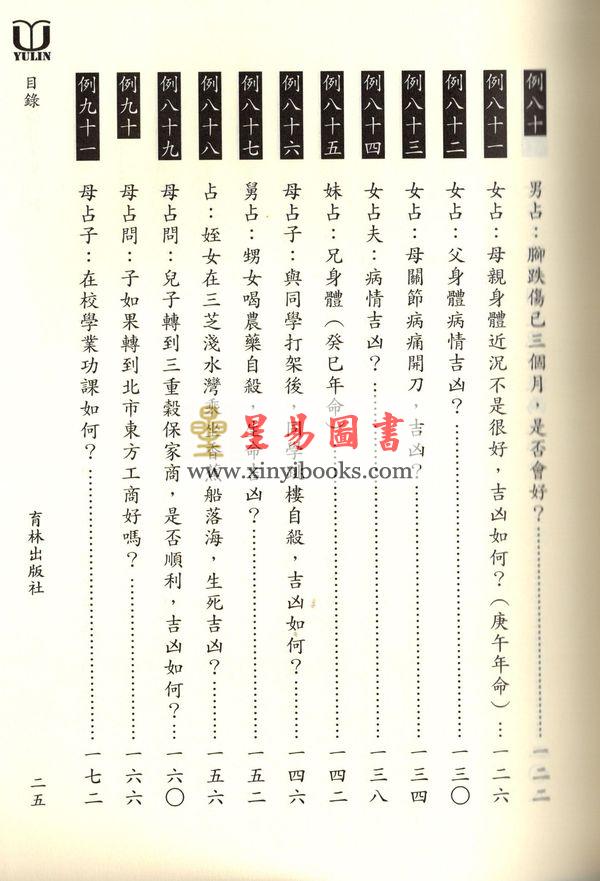 例八十 男占：腳跌傷已三個月，是否會好？……一二二
例八十一 女占：母親身體近況不是很好，吉凶如何？（庚午年命）…一二六
例八十二 女占：父身體病情吉凶？……一三〇
例八十三 女占：母關節病痛開刀，吉凶？……一三四
例八十四 女占夫：病情吉凶？……一三八
例八十五 妹占：兄身體（癸巳年命）……一四二
例八十六 母占子：與同學打架後，同學樓自殺，吉凶如何？……一四六
例八十七 舅占：甥女喝農藥自殺，生命吉凶？……一五二
例八十八 占：姪女在三芝淺水灣乘坐香蕉船落海，生死吉凶？……一五六
例八十九 母占問：兒子轉到三重穀保家商，是否順利，吉凶如何？…一六〇
例九十 母占問：子如果轉到北市東方工商好嗎？……一六六
例九十一 母占子：在校學業功課如何？……一七二
YULIN
目錄
育林出版社
二五
星易圖書
www.xinyibooks.com